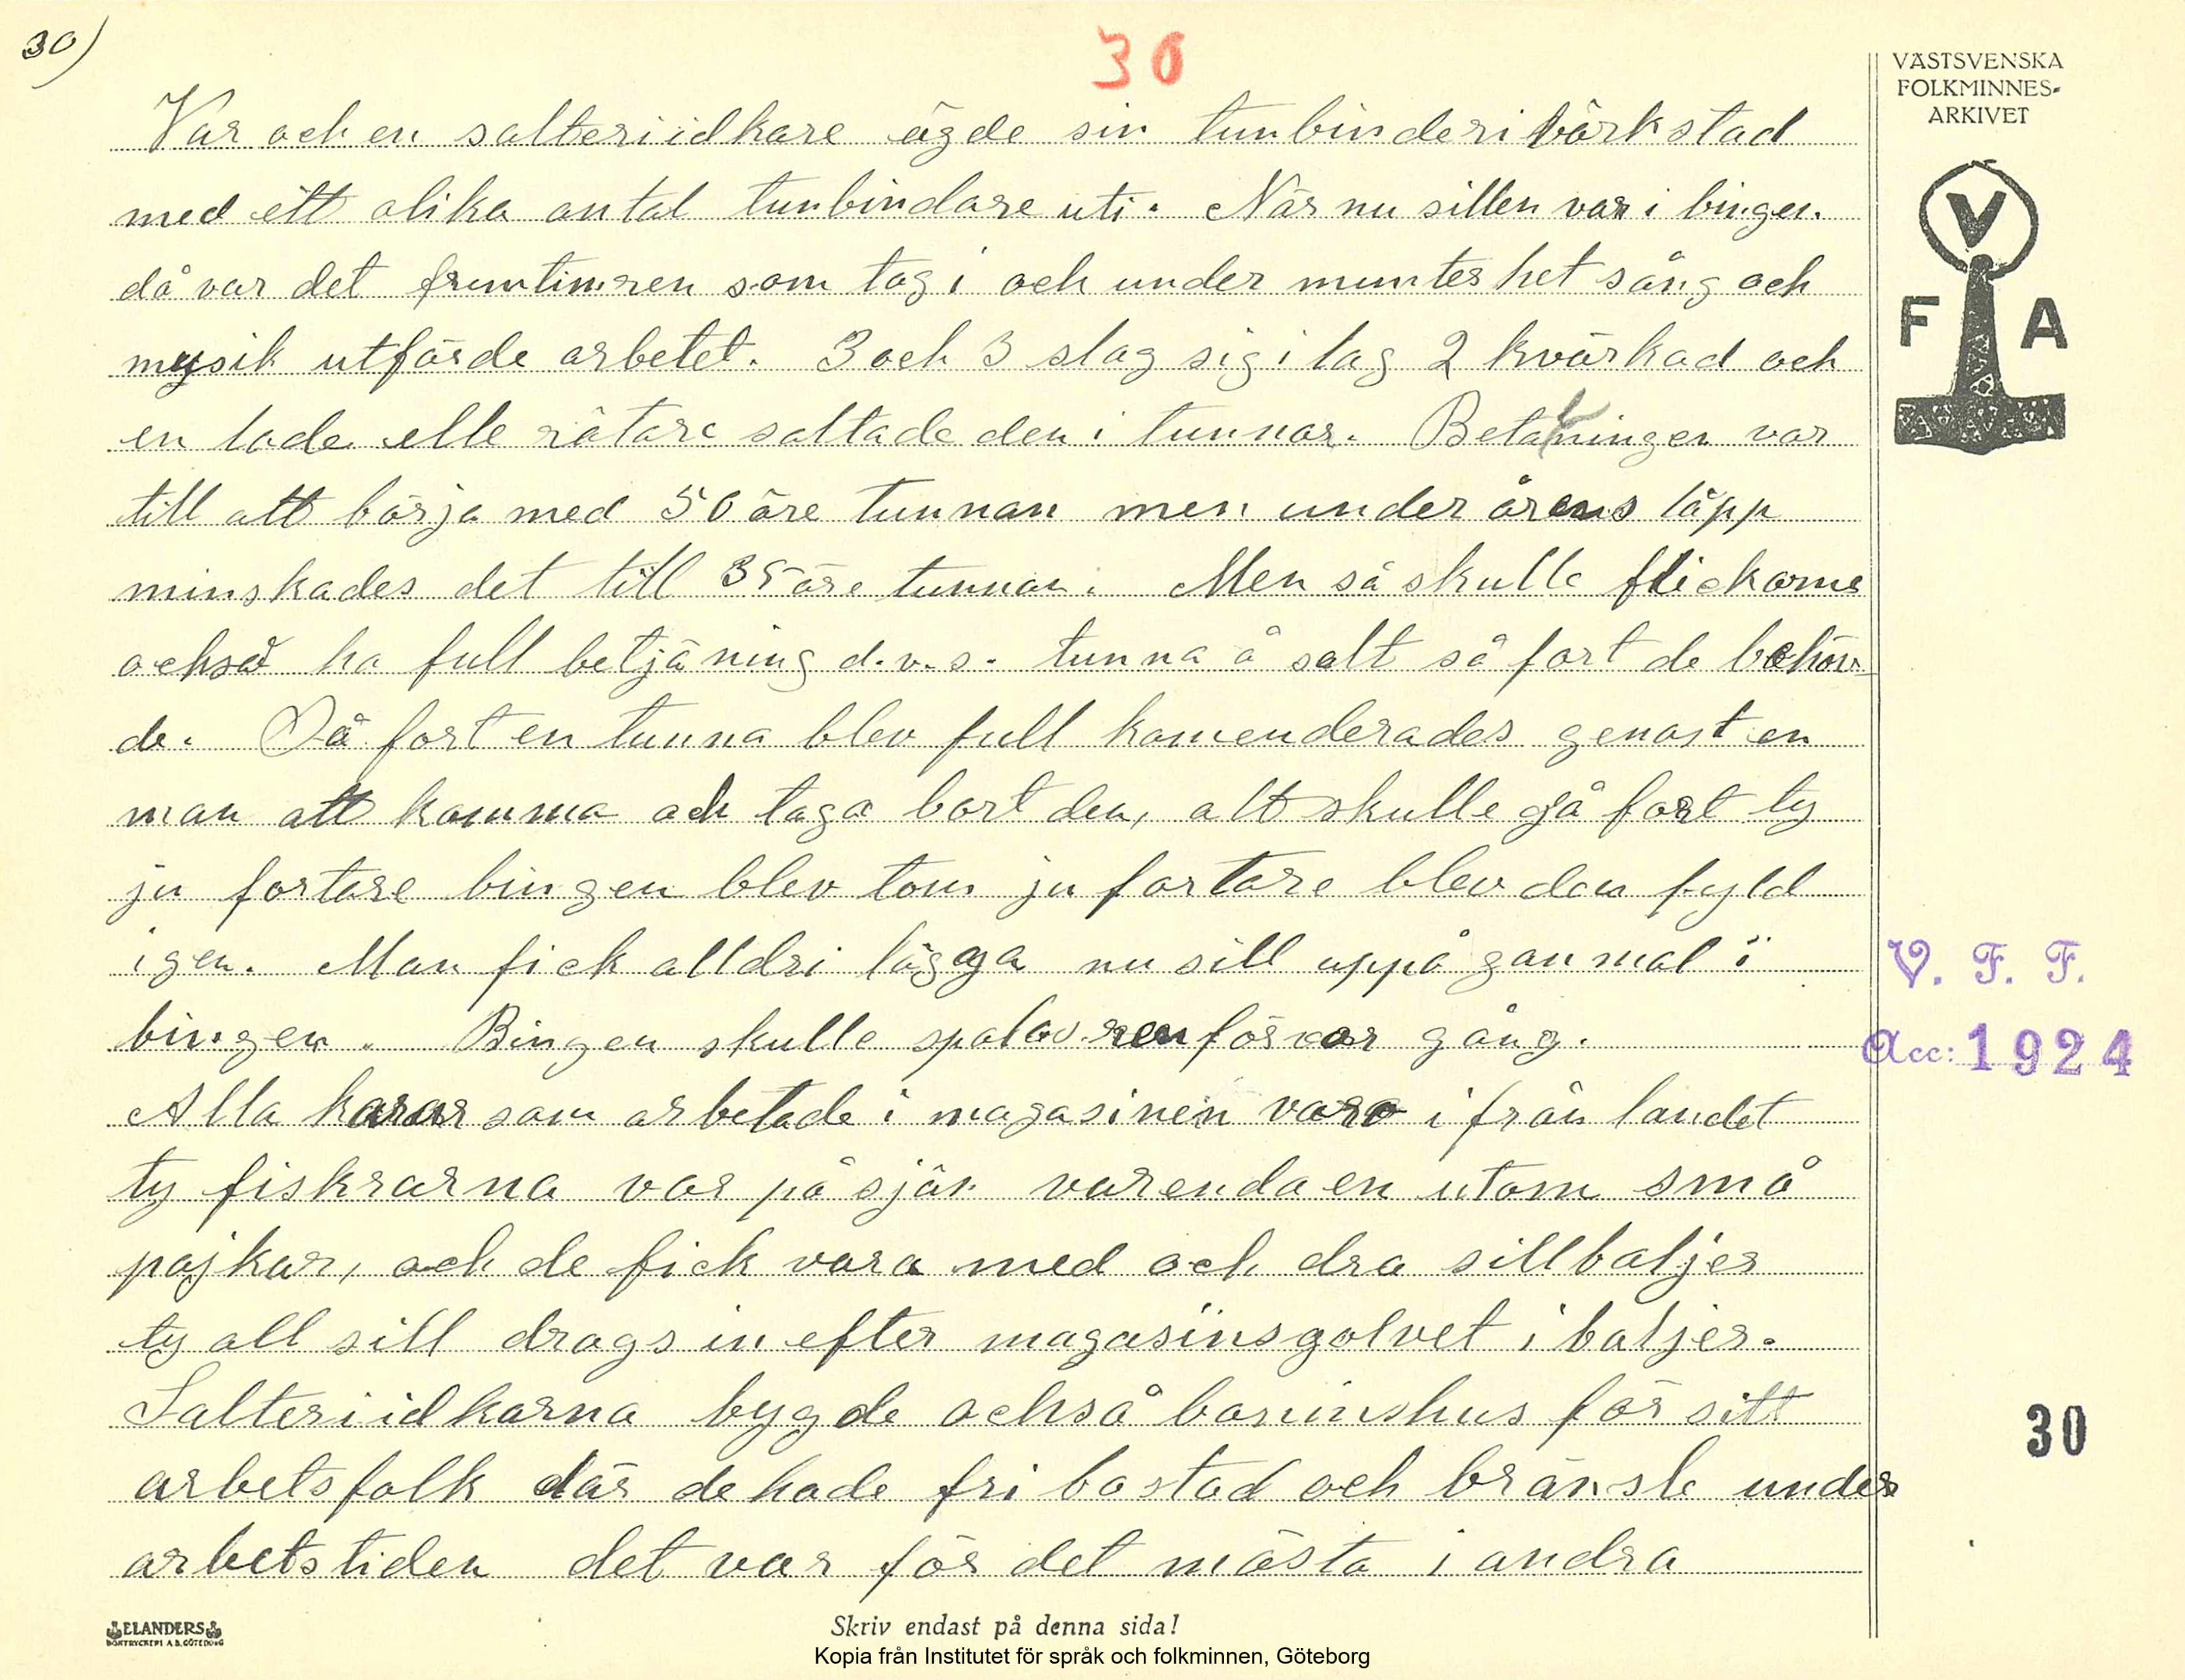 30)
30
VÄSTSVENSKA
FOLKMINNES-
ARKIVET
V
F A
Var och en salteriidkare ägde sin tunbinderibärkstad
med ett olika antal tunbindare uti. När nu sillen var i bingen.
då var det fruntimren som tog i och under munterhet sång och
mysik utförde arbetet. 3 och 3 slog sig i lag 2 kvärkad och
en lade elle rätare saltade den i tunnor. Betalningen var
till att börja med 50 öre tunnan men under årens låpp
minskades det till 35 öre tunnan. Men så skulle flickorna
också ha full betjäning d.v.s. tunna å salt så fort de behöv
de. Så fort en tunna blev full komenderades genast en
man att komma och taga bort den, allt skulle gå fort ty
ju fortare bingen blev tom ju fortare blev den fyld
igen. Man fick alldri lägga nu sill uppå gammal i
bingen. Bingen skulle spolas ren för var gång.
Alla karar som arbetade i magasinen voro ifrån landet
ty fiskrarna var på sjön varenda en utom små
pojkar, och de fick vara med och dra sillbaljer
ty all sill drogs in efter magasinsgolvet i baljer.
Salteriidkarna bygde också boninshus för sitt
arbetsfolk där de hade fri bostad och bränsle under
arbetstiden det var för det mästa i andra
V. F. F.
Acc: 1924
30
ELANDERS
BOKTRYCKERI A.B. GÖTEBORG
Skriv endast på denna sida!
Kopia från Institutet för språk och folkminnen, Göteborg